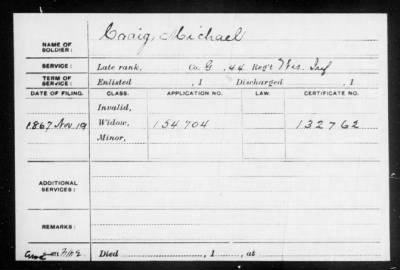 NAME OF SOLDIER: Craig, Michael
SERVICE: Late rank, Co. G, 44 Reg't Wis. Inf
TERM OF SERVICE: Enlisted , 1 Discharged , 1
DATE OF FILING. CLASS. APPLICATION NO. LAW. CERTIFICATE NO.
Invalid,
1867 Nov. 19 Widow, 154704 132762
Minor,
ADDITIONAL SERVICES:
REMARKS:
Died , 1 , at